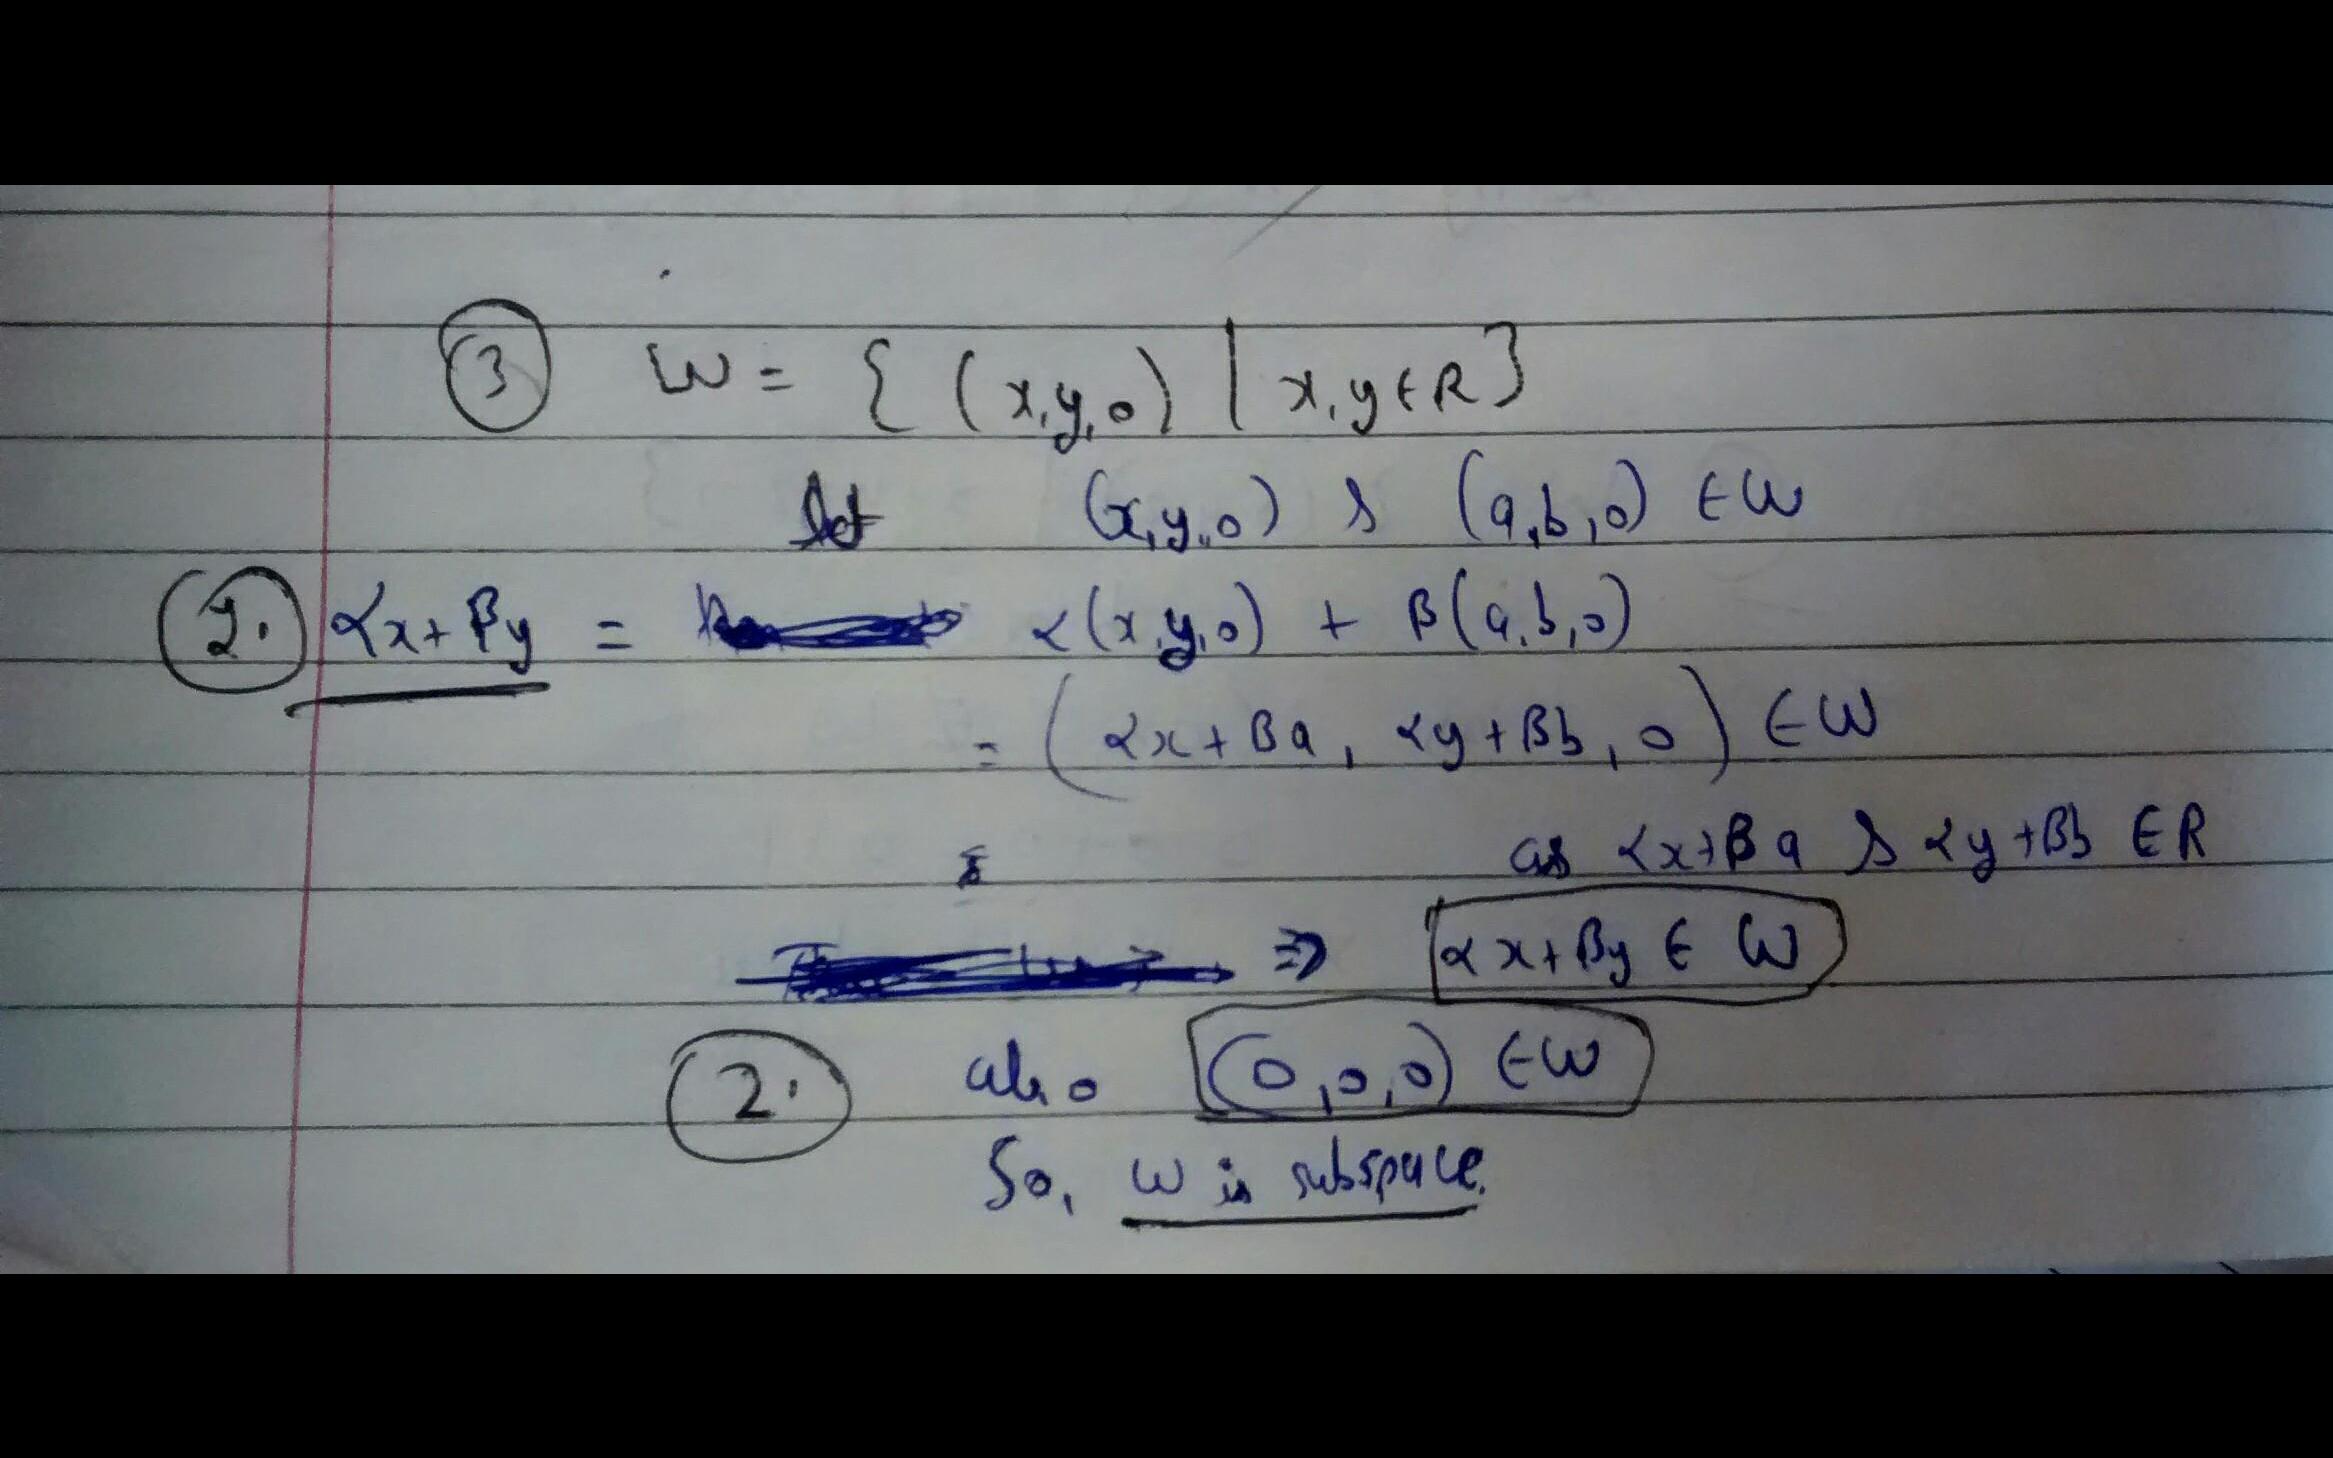 ③ W = { (x,y,0) | x,y ∈ R }
let (x,y,0) & (a,b,0) ∈ W
αx + βy = α(x,y,0) + β(a,b,0)
= (αx + βa, αy + βb, 0) ∈ W
as αx + βa & αy + βb ∈ R
⇒ αx + βy ∈ W
2. also (0,0,0) ∈ W
So, W is subspace.